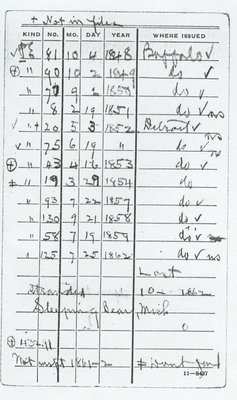 + Not in files
KIND NO. MO. DAY YEAR WHERE ISSUED
PE 81 10 4 1848 Buffalo ✓
⊕ " 90 10 2 1849 do ✓
" 70 9 2 1850 do ✓
" 8 2 19 1851 do ✓ ns
" + 20 5 3 1852 Detroit ✓ ns
✓ " 75 6 19 " do ✓
⊕ " 43 4 16 1853 do ✓
‡ " 19 3 29 1854 do
" 93 7 22 1857 do ✓
" 130 9 21 1858 do ✓
" 58 7 19 1859 do ✓
" 125 7 25 1862 do ✓ ns
Lost
Stranded 10 - 1862
Sleeping Bear, Mich
" 0
⊕ 432-11
Not in list 1861-2
11-8437